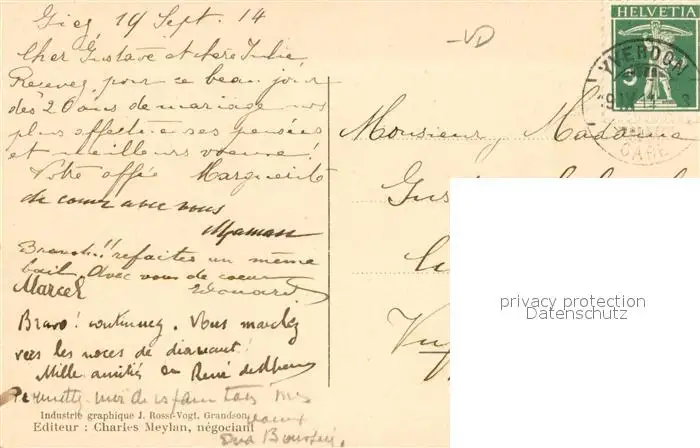 Giez, 19 Sept. 14
Cher Gustave et chère Julie,
Recevez pour ce beau jour
des 20 ans de mariage nos
plus affectueuses pensées
et meilleurs voeux!
Votre afféc Marguerite
de coeur avec vous
Maman
Bravo!! refaites un même
bail. Avec vous de coeur
Marcel Edouard
Bravo! continuez. Vous marchez
vers les noces de diamant!
Mille amitiés René
Permettez-moi
Industrie graphique J. Rossi-Vogt, Grandson
Editeur : Charles Meylan, négociant
HELVETIA
5
YVERDON
GARE
Monsieur, Madame
privacy protection
Datenschutz